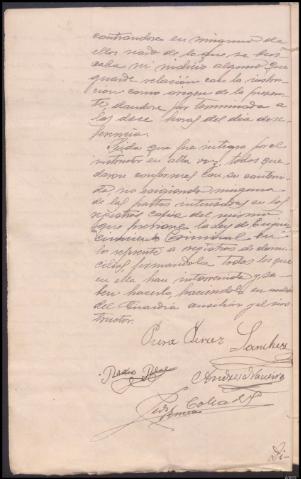 contrandose en ninguno de
ellos nada de lo que se bus
caba ni indicio alguno que
guarde relación con la instruc
cion como origen de la presen
te, dandose por terminada a
las doce horas del dia de re
ferencia.
Leida que fué integra por el
instructor en alta voz, todos que
daron conformes con su conteni
do, no exigiendo ninguna
de las partes interesadas en los
registros copia del mismo
que previene la Ley de Enjui
ciamiento Criminal en
lo referente a registros de domi
cilios firmandola todos los que
en ella han intervenido y sa
ben hacerlo, haciendolo
del Guardia auxiliar y el ins
tructor.
Pérez Sanchez
Pedro
Andres